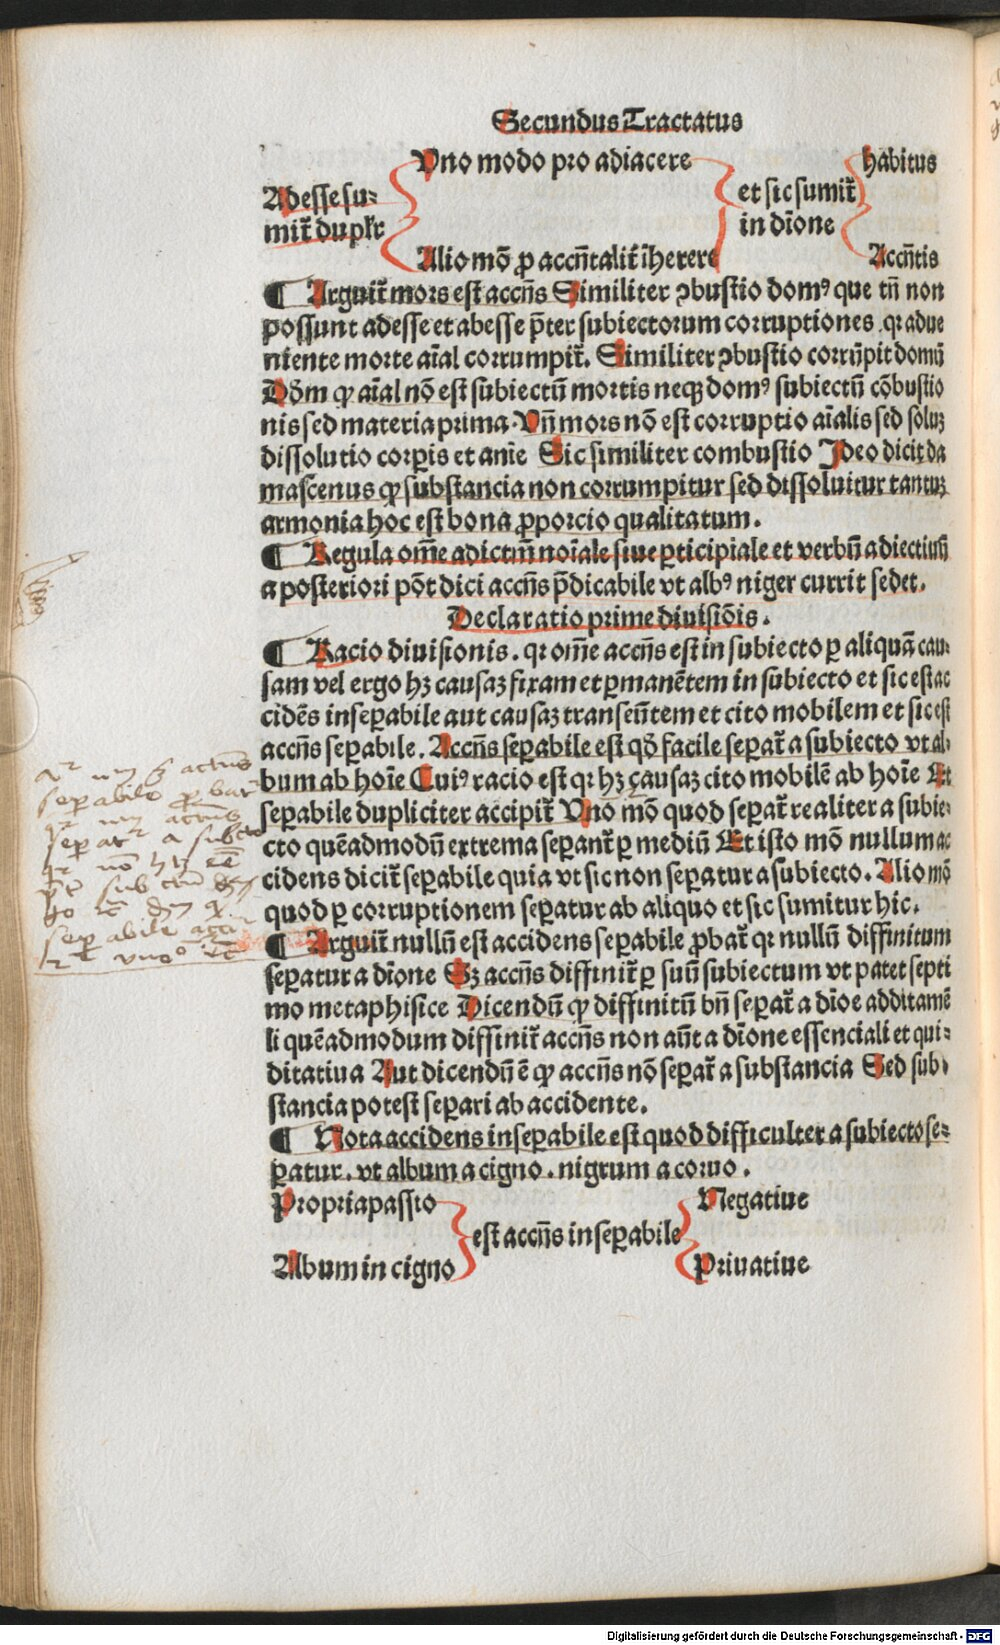 Secundus Tractatus
Uno modo pro adiacere
habitus
Adesse su-
et sic sumit̃
mit̃ duplr̃
in dīone
Alio mō ꝓ accñtalit̃ iherere
Accñtis
¶ Arguit̃ mors est accñs Similiter ꝯbustio domꝰ que tñ non
possunt adesse et abesse p̃ter subiectorum corruptiones .qꝛ adue
niente morte aīal corrumpit̃. Similiter ꝯbustio corrūpit domū
Dōm ꝙ aīal nō est subiectū mortis neqꝫ domꝰ subiectū cōbustio
nis sed materia prima. Uñ mors nō est corruptio aīalis sed soluꝫ
dissolutio corꝑis et anīe Sic similiter combustio Ideo dicit da
mascenus ꝙ substancia non corrumpitur sed dissoluitur tantuꝫ
armonia hoc est bona ꝓporcio qualitatum.
¶ Regula om̄e adictiū noīale siue ꝑticipiale et verbū adiectiuū
a posteriori pōt dici accñs p̄dicabile vt albꝰ niger currit sedet.
Declaratio prime diuisiōis.
¶ Racio diuisionis. qꝛ om̄e accñs est in subiecto ꝑ aliquā cau-
sam vel ergo hꝫ causaꝫ fixam et ꝑmanētem in subiecto et sic est ac
cidēs inseꝑabile aut causaꝫ transeūtem et cito mobilem et sic est
accñs seꝑabile. Accñs seꝑabile est qd̄ facile seꝑat̃ a subiecto vt al-
bum ab hoīe Cuiꝰ racio est qꝛ hꝫ causaꝫ cito mobilē ab hoīe Et
seꝑabile dupliciter accipit̃ Uno mō quod seꝑat̃ realiter a subie-
cto quēadmodū extrema seꝑant̃ ꝑ mediū Et isto mō nullum ac
cidens dicit̃ seꝑabile quia vt sic non seꝑatur a subiecto. Alio mō
quod ꝑ corruptionem seꝑatur ab aliquo et sic sumitur hic.
¶ Arguit̃ nullū est accidens seꝑabile ꝓbat̃ qꝛ nullū diffinitum
seꝑatur a dīone Sꝫ accñs diffinit̃ ꝑ suū subiectum vt patet septi
mo metaphisice Dicendū ꝙ diffinitū bñ seꝑat̃ a dīoe additamē
li quēadmodum diffinit̃ accñs non aūt a dīone essenciali et qui-
ditatiua Aut dicendū ē ꝙ accñs nō seꝑat̃ a substancia Sed sub-
stancia potest seꝑari ab accidente.
¶ Nota accidens inseꝑabile est quod difficulter a subiecto se-
ꝑatur. vt album a cigno. nigrum a coruo.
Propria passio
Negatiue
est accñs inseꝑabile
Album in cigno
Priuatiue
seꝑabile ꝓbat̃
seꝑat̃ a subcto
seꝑabile
Digitalisierung gefördert durch die Deutsche Forschungsgemeinschaft - DFG